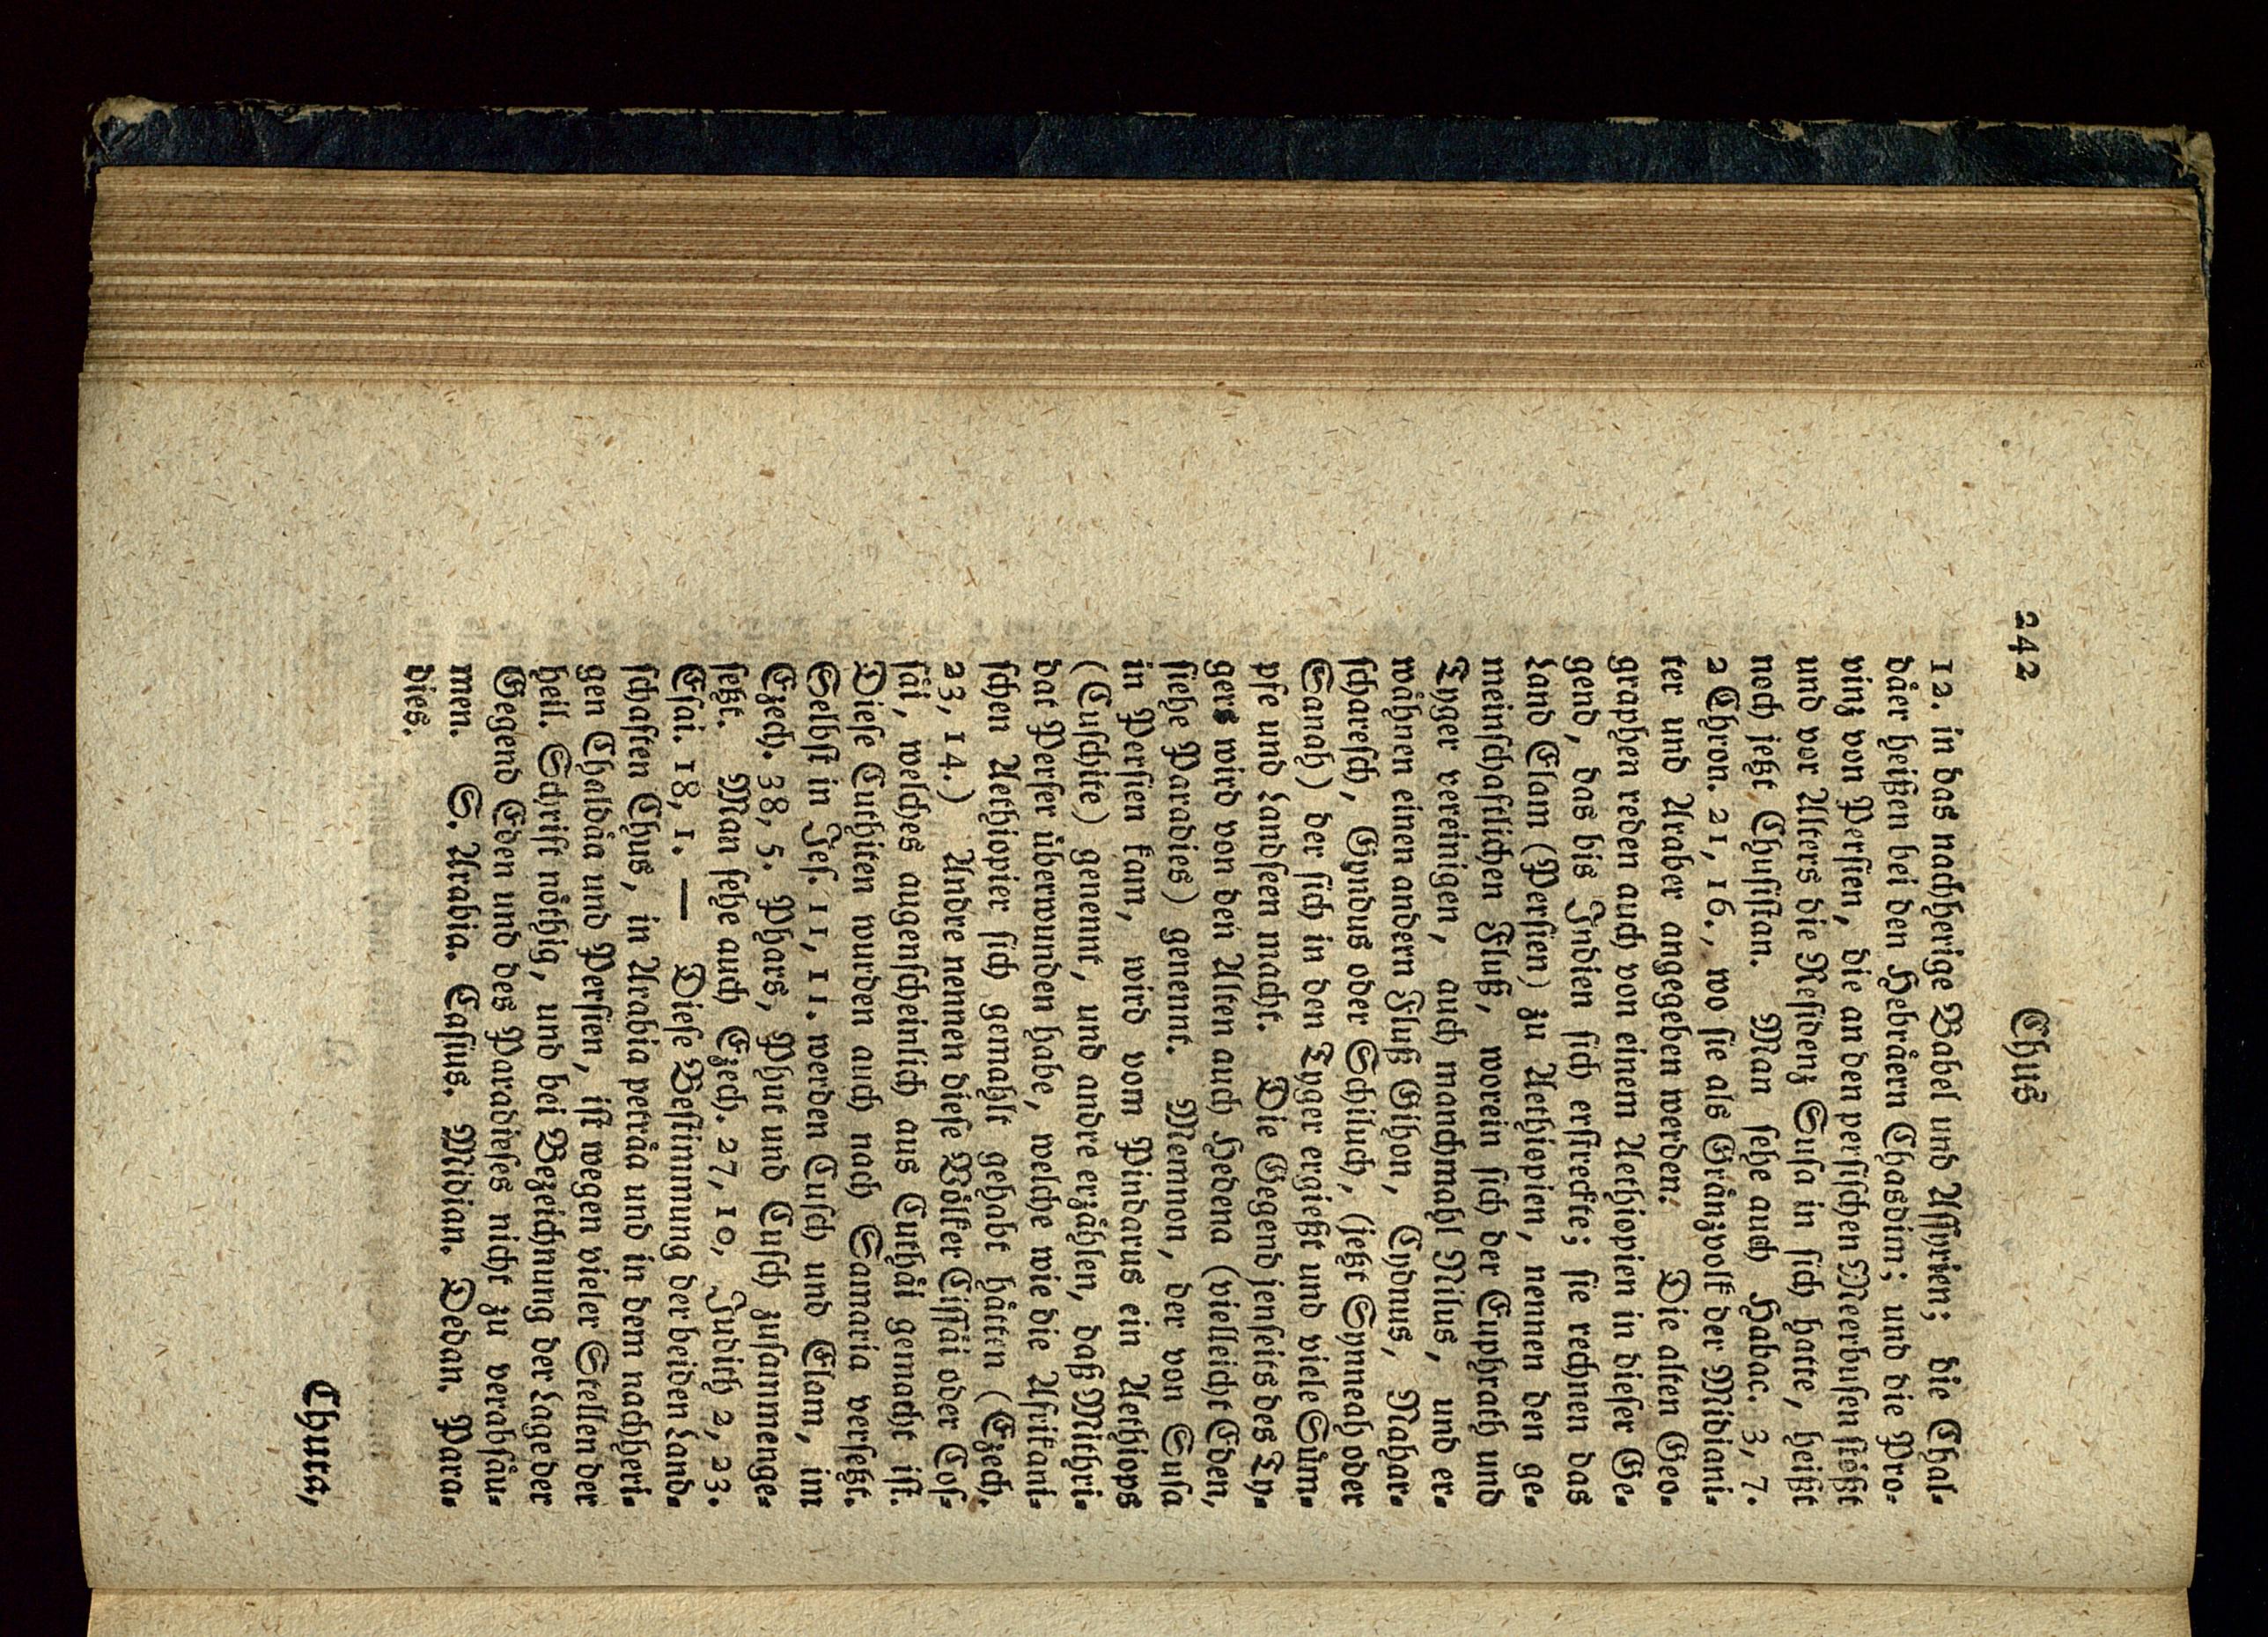 242 Chus
12. in das nachherige Babel und Assyrien; die Chal-
däer heißen bei den Hebräern Chasdim; und die Pro-
vinz von Persien, die an den persischen Meerbusen stößt
und vor Alters die Residenz Susa in sich hatte, heißt
noch jetzt Chusistan. Man sehe auch Habac. 3, 7.
2 Chron. 21, 16., wo sie als Gränzvolk der Midiani-
ter und Araber angegeben werden. Die alten Geo-
graphen reden auch von einem Aethiopien in dieser Ge-
gend, das bis Indien sich erstreckte; sie rechnen das
Land Elam (Persien) zu Aethiopien, nennen den ge-
meinschaftlichen Fluß, worein sich der Euphrath und
Tyger vereinigen, auch manchmahl Nilus, und er-
wähnen einen andern Fluß Gihon, Cydnus, Mahar-
scharesch, Gyndus oder Schiluch, (jetzt Synneah oder
Sanah) der sich in den Tyger ergießt und viele Süm-
pfe und Landseen macht. Die Gegend jenseits des Ty-
gers wird von den Alten auch Hedena (vielleicht Eden,
siehe Paradies) genennt. Memnon, der von Susa
in Persien kam, wird vom Pindarus ein Aethiops
(Cuschite) genennt, und andre erzählen, daß Mithri-
dat Perser überwunden habe, welche wie die Afrikani-
schen Aethiopier sich gemahlt gehabt hätten (Ezech.
23, 14.) Andre nennen diese Völker Cissäi oder Cos-
säi, welches augenscheinlich aus Cuthäi gemacht ist.
Diese Cuthiten wurden auch nach Samaria versetzt.
Selbst in Jes. 11, 11. werden Cusch und Elam, im
Ezech. 38, 5. Phars, Phut und Cusch zusammenge-
setzt. Man sehe auch Ezech. 27, 10, Judith 2, 23.
Esai. 18, 1. — Diese Bestimmung der beiden Land-
schaften Chus, in Arabia peträa und in dem nachheri-
gen Chaldäa und Persien, ist wegen vieler Stellen der
heil. Schrift nöthig, und bei Bezeichnung der Lage der
Gegend Eden und des Paradieses nicht zu verabsäu-
men. S. Arabia. Casius. Midian. Dedan. Para-
dies.
Chuta,